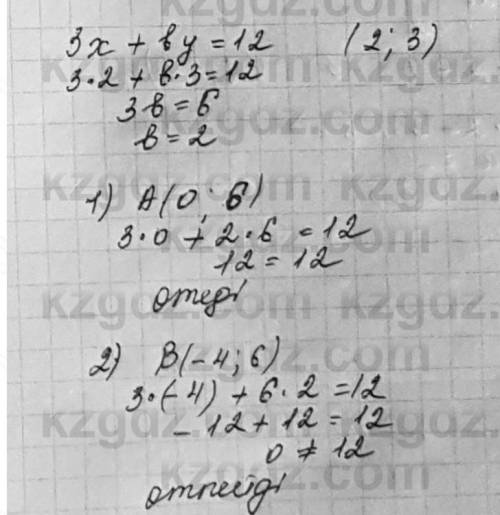 3x + by = 12 (2; 3)
3·2 + b·3 = 12
3b = 6
b = 2
1) A(0; 6)
3·0 + 2·6 = 12
12 = 12
өтеді
2) B(-4; 6)
3·(-4) + 6·2 = 12
-12 + 12 = 12
0 ≠ 12
өтпейді
kzgdz.com